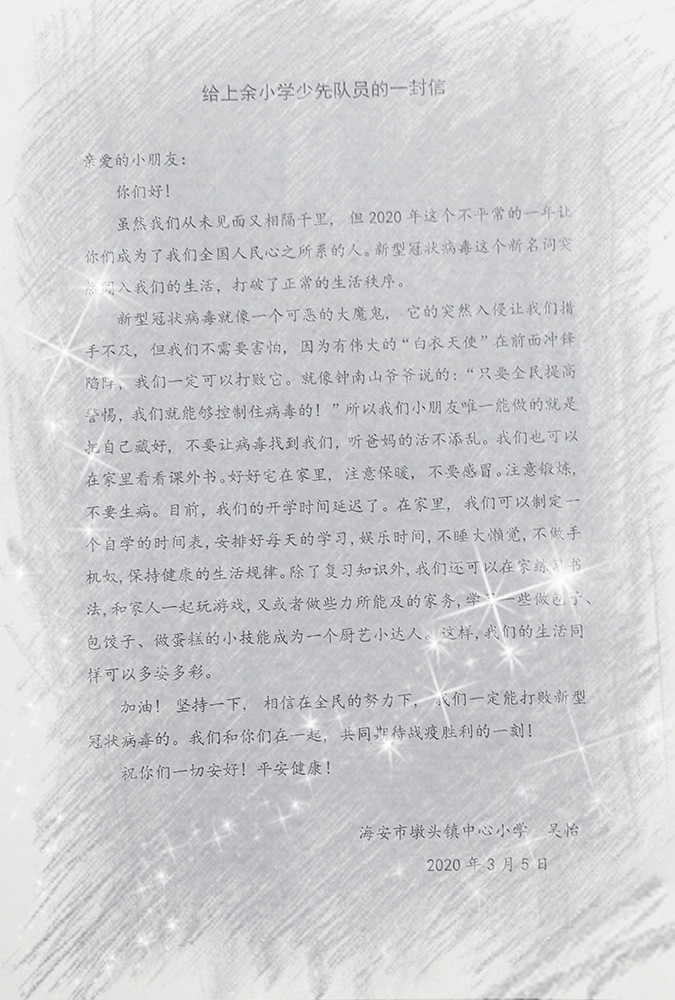 给上余小学少先队员的一封信
亲爱的小朋友：
你们好！
虽然我们从未见面又相隔千里，但 2020 年这个不平常的一年让
你们成为了我们全国人民心之所系的人。新型冠状病毒这个新名词突
闯入我们的生活，打破了正常的生活秩序。
新型冠状病毒就像一个可恶的大魔鬼，它的突然入侵让我们措
手不及，但我们不需要害怕，因为有伟大的“白衣天使”在前面冲锋
陷阵，我们一定可以打败它。就像钟南山爷爷说的：“只要全民提高
警惕，我们就能够控制住病毒的！”所以我们小朋友唯一能做的就是
把自己藏好，不要让病毒找到我们，听爸妈的话不添乱。我们也可以
在家里看看课外书。好好宅在家里，注意保暖，不要感冒。注意锻炼，
不要生病。目前，我们的开学时间延迟了。在家里，我们可以制定一
个自学的时间表，安排好每天的学习，娱乐时间，不睡大懒觉，不做手
机奴，保持健康的生活规律。除了复习知识外，我们还可以在家练习书
法，和家人一起玩游戏，又或者做些力所能及的家务，学习一些做包子、
包饺子、做蛋糕的小技能成为一个厨艺小达人。这样，我们的生活同
样可以多姿多彩。
加油！坚持一下，相信在全民的努力下，我们一定能打败新型
冠状病毒的。我们和你们在一起，共同期待战疫胜利的一刻！
祝你们一切安好！平安健康！
海安市墩头镇中心小学 吴怡
2020 年 3 月 5 日